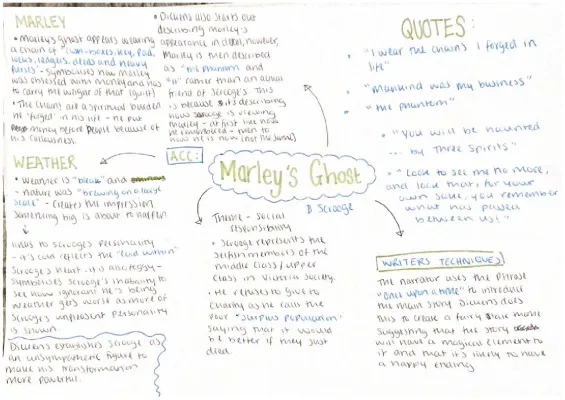 MARLEY
• Marley's ghost appears wearing
a chain of "cash-boxes, key, pad,
locks, leagers, deeds and heavy
purses" - symbolises how Marley
was obsessed with money and has
to carry the weight of that (guilt)
• The chains are a spiritual burden
he 'forged' in his life - he put
money before people because of
his callousness.
• Dickens also starts out
describing Marley's
appearance in detail, however,
Marley is then described
as "the phantom" and
"it" rather than an actual
friend of Scrooge's. This
is because it's describing
how Scrooge is viewing
Marley - at first like how
he remembered - then to
how he is now (not the same)
QUOTES:
• "I wear the chains I forged in
life"
• "Mankind was my business"
• "the phantom"
• "You will be haunted
... by Three Spirits"
• "Look to see me no more,
and look that, for your
own sake, you remember
what has passed
between us!"
WEATHER
• Weather is "bleak" and
- nature was "brewing on a large
scale" - creates the impression
something big is about to happen
links to Scrooge's personality
- it's cold reflects the "cold within"
Scrooge's heart - it is
symbolises Scrooge's inability to
see how ignorant he's being
weather gets worse as more of
Scrooge's unpleasant personality
is shown.
Dickens establishes Scrooge as
an unsympathetic figure to
make his transformation
more powerful.
ACC:
Marley's Ghost
& Scrooge
Theme - Social
responsibility
• Scrooge represents the
selfish members of the
middle class / upper
class in Victoria society.
• He refuses to give to
charity as he calls the
poor "surplus population"
saying that it would
be better if they just
died.
WRITERS TECHNIQUES
The narrator uses the phrase
"Once upon a time" to introduce
the main story. Dickens does
this to create a fairy tale
suggesting that the story
will have a magical element to
it and that it's likely to have
a happy ending